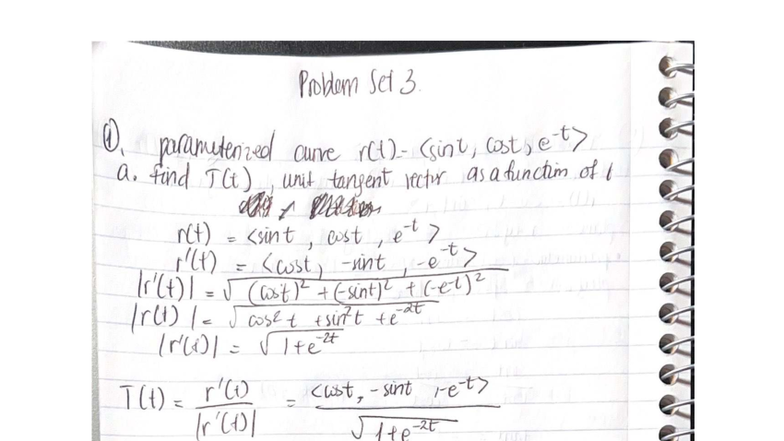 Problem Set 3.
①. parameterized curve r(t) = <sint, cost, e^-t>
a. find T(t), unit tangent vector as a function of t
r(t) = <sint, cost, e^-t>
r'(t) = <cost, -sint, -e^-t>
|r'(t)| = √(cost)² + (-sint)² + (-e^-t)²
|r(t)| = √cos²t + sin²t + e^-2t
|r'(t)| = √1+e^-2t
T(t) = r'(t) / |r'(t)| = <cost, -sint, -e^-t> / √1+e^-2t